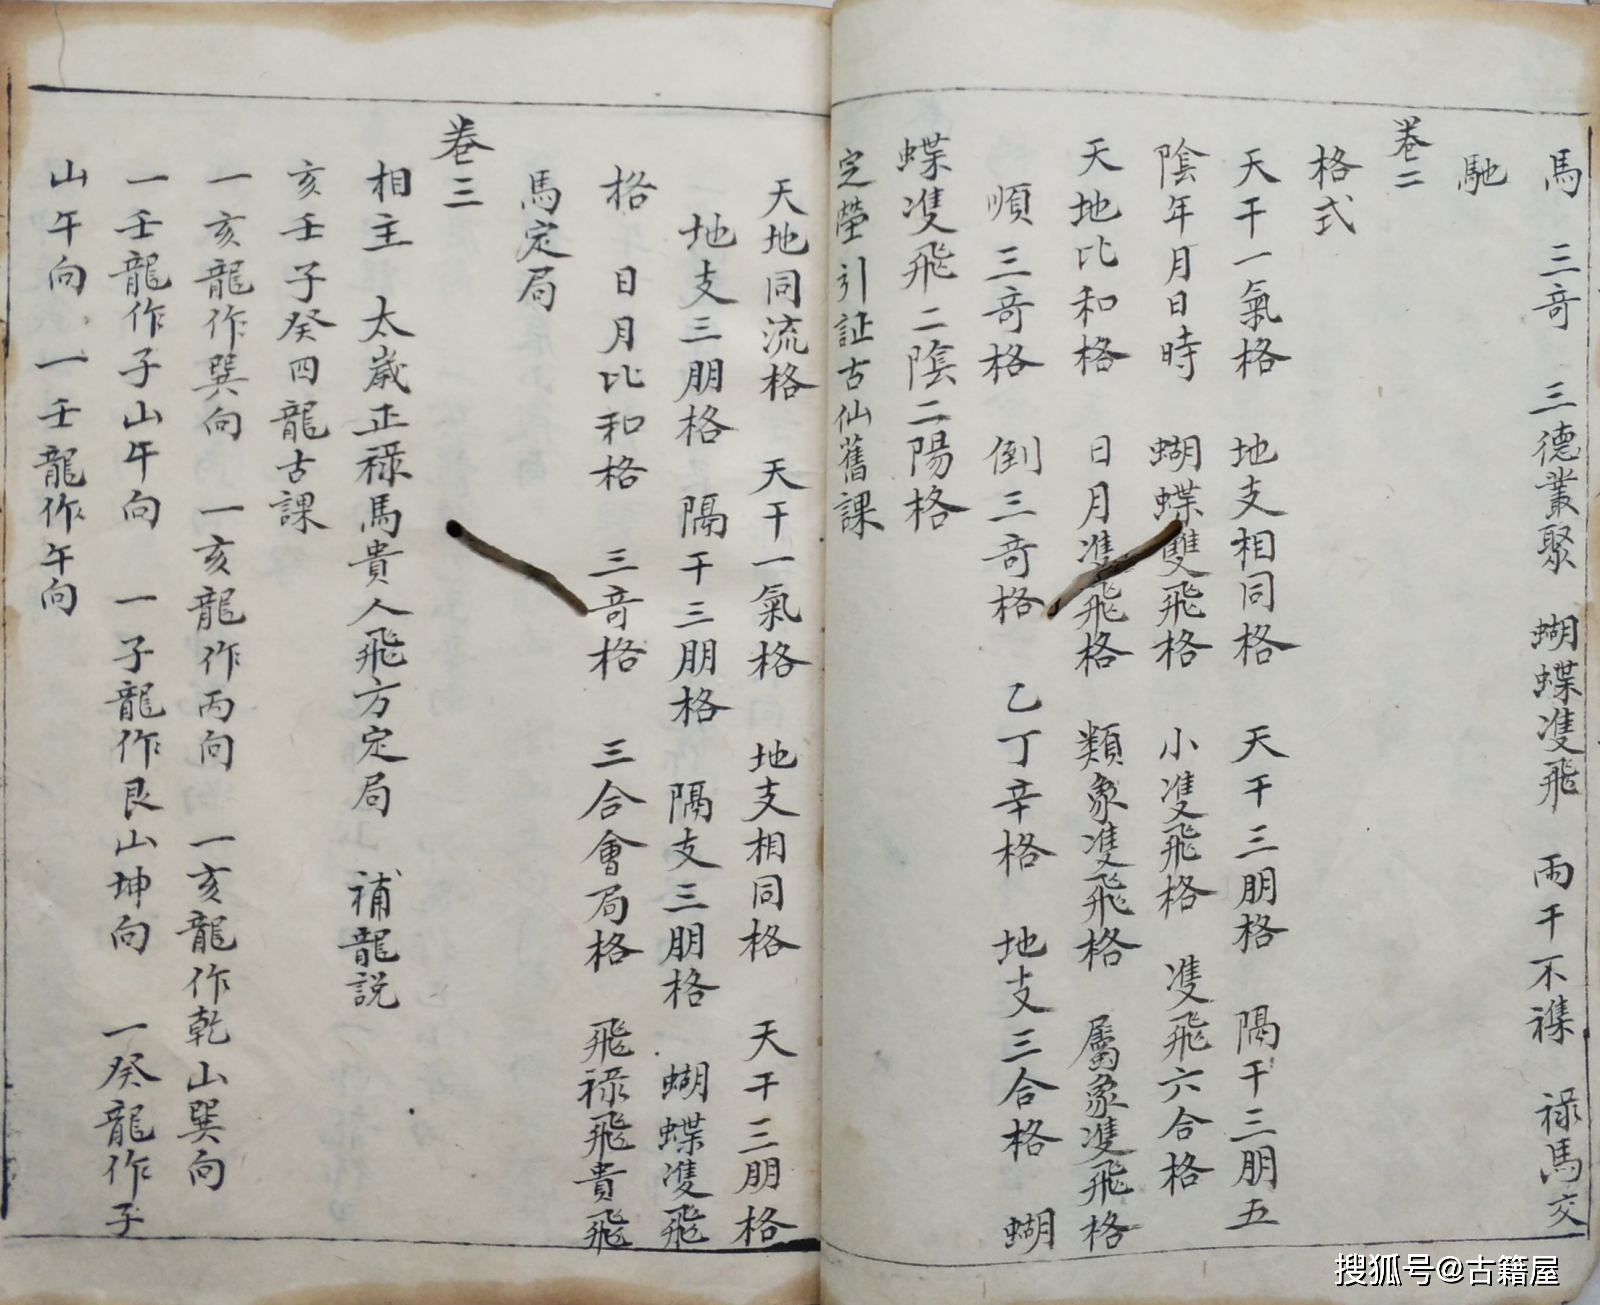 馬　三竒　三德叢聚　蝴蝶隻飛　兩干不襍　禄馬交
馳
卷二
格式
天干一氣格　地支相同格　天干三朋格　隔干三朋五
陰年月日時　蝴蝶雙飛格　小隻飛格　隻飛六合格
天地比和格　日月隻飛格　類象隻飛格　屬象隻飛格
順三竒格　倒三竒格　乙丁辛格　地支三合格　蝴
蝶隻飛二陰二陽格
定塋引証古仙舊課
天地同流格　天干一氣格　地支相同格　天干三朋格
地支三朋格　隔干三朋格　隔支三朋格　蝴蝶隻飛
格　日月比和格　三竒格　三合會局格　飛禄飛貴飛
馬定局
卷三
相主　太歲正禄馬貴人飛方定局　補龍説
亥壬子癸四龍古課
一亥龍作巽向　一亥龍作丙向　一亥龍作乾山巽向
一壬龍作子山午向　一子龍作艮山坤向　一癸龍作子
山午向　一壬龍作午向
搜狐号@古籍屋